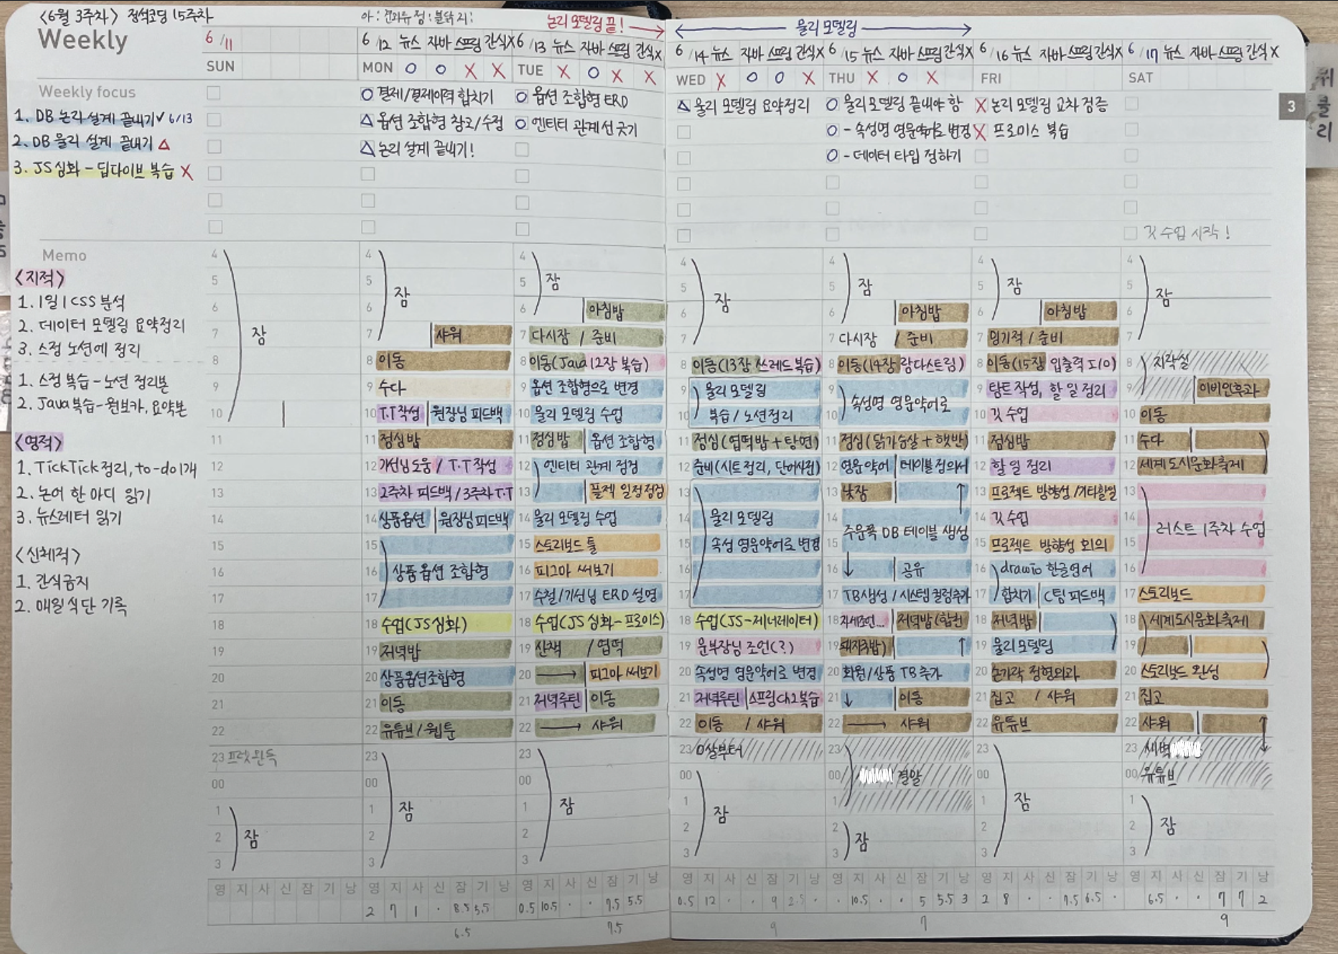 <6월 3주차> 정석코딩 15주차
Weekly
6/11
SUN
Weekly focus
1. DB 논리 설계 끝내기 ✓ 6/13
2. DB 물리 설계 끝내기 △
3. JS 심화 - 딥다이브 복습 X
Memo
<지적>
1. 1일 1 CSS 분석
2. 데이터 모델링 요약정리
3. 스정 노션에 정리
1. 스정 복습 - 노션 정리본
2. Java복습 - 워보카, 요약본
<영적>
1. TickTick정리, to-do 1개
2. 논어 한 마디 읽기
3. 뉴스레터 읽기
<신체적>
1. 간식금지
2. 매일 식단 기록
잠
23
00
잠
논리 모델링 끝!
물리 모델링
6/12 뉴스 자바 스프링 간식X
MON O O X X
O 결제/결제이력 합치기
△ 옵션 조합형 참고/수정
△ 논리 설계 끝내기!
잠
7 샤워
8 이동
9 수다
10 T.T 작성 원장님 피드백
11 점심밥
12 기선님 도움 / T.T 작성
13 2주차 피드백 / 3주차 T.T
14 상품옵션 원장님 피드백
15
16 상품 옵션 조합형
17
18 수업(JS심화)
19 저녁밥
20 상품옵션조합형
21 이동
22 유튜브 / 웹툰
잠
2 7 1 · 8.5 5.5
6.5
6/13 뉴스 자바 스프링 간식X
TUE X O X X
O 옵션 조합형 ERD
O 엔티티 관계선 긋기
잠
6 아침밥
7 다시잠 / 준비
8 이동(Java 12장 복습)
9 옵션 조합형으로 변경
10 물리 모델링 수업
11 점심밥 옵션 조합형
12 엔티티 관계 점검
13 플젝 일정점검
14 물리 모델링 수업
15 스토리보드 툴
16 피그마 써보기
17 수철/기선님 ERD 설명
18 수업(JS 심화-프로미스)
19 산책 / 엽떡
20 → 피그마 써보기
21 저녁루틴 이동
22 → 샤워
잠
0.5 10.5 · · 7.5 5.5
7.5
6/14 뉴스 자바 스프링 간식X
WED X O O X
△ 물리 모델링 요약정리
잠
8 이동(13장 쓰레드 복습)
9 물리 모델링
10 복습 / 노션정리
11 점심(엽떡밥 + 탕면)
12 준비(시트정리, 단어사전)
13
14 물리 모델링
15 속성 영문약어로 변경
16
17
18 수업(JS-제너레이터)
19 조언(?)
20 속성명 영문약어로 변경
21 저녁루틴 스프링 ch2 복습
22 이동 / 샤워
23
잠
0.5 12 · · 9 2.5 ·
9
6/15 뉴스 자바 스프링 간식X
THU X O X
O 물리 모델링 끝내야 함
O - 속성명 영문약어로 변경
O - 데이터 타입 정하기
잠
6 아침밥
7 다시잠 / 준비
8 이동(14장 람다스트림)
9
10 속성명 영문약어로
11 점심(닭가슴살 + 햇반)
12 영문약어 테이블 정의서
13 낮잠
14 주문쪽 DB 테이블 생성
15
16 공유
17 TB생성 /
18 저녁밥
19
20 회원/상품 TB 추가
21 이동
22 → 샤워
결말
잠
· 10.5 · · 5 5.5 3
7
6/16 뉴스 자바 스프링 간식X
FRI
X 논리 모델링 교차 검증
X 프로미스 복습
잠
6 아침밥
7 밍기적 / 준비
8 이동(15장 입출력 I/O)
9 탐트 작성, 할 일 정리
10 깃 수업
11 점심밥
12 할 일 정리
13 프로젝트 방향성 / 기타할일
14 깃 수업
15 프로젝트 방향성 회의
16 draw.io 한글영어
17 합치기 C팀 피드백
18 저녁밥
19 물리모델링
20 손가락 정형외과
21 집고 / 샤워
22 유튜브
잠
2 8 · · 7.5 6.5 ·
6/17 뉴스 자바 스프링 간식X
SAT
깃 수업 시작!
잠
9 이비인후과
10 이동
11 수다
12 세계도시문화축제
13
14 러스트 1주차 수업
15
16
17 스토리보드
18 세계도시문화축제
19
20 스토리보드 완성
21 집고
22 샤워
23 새벽
00 유튜브
잠
· 6.5 · · 7 7 2
9
3
위클리